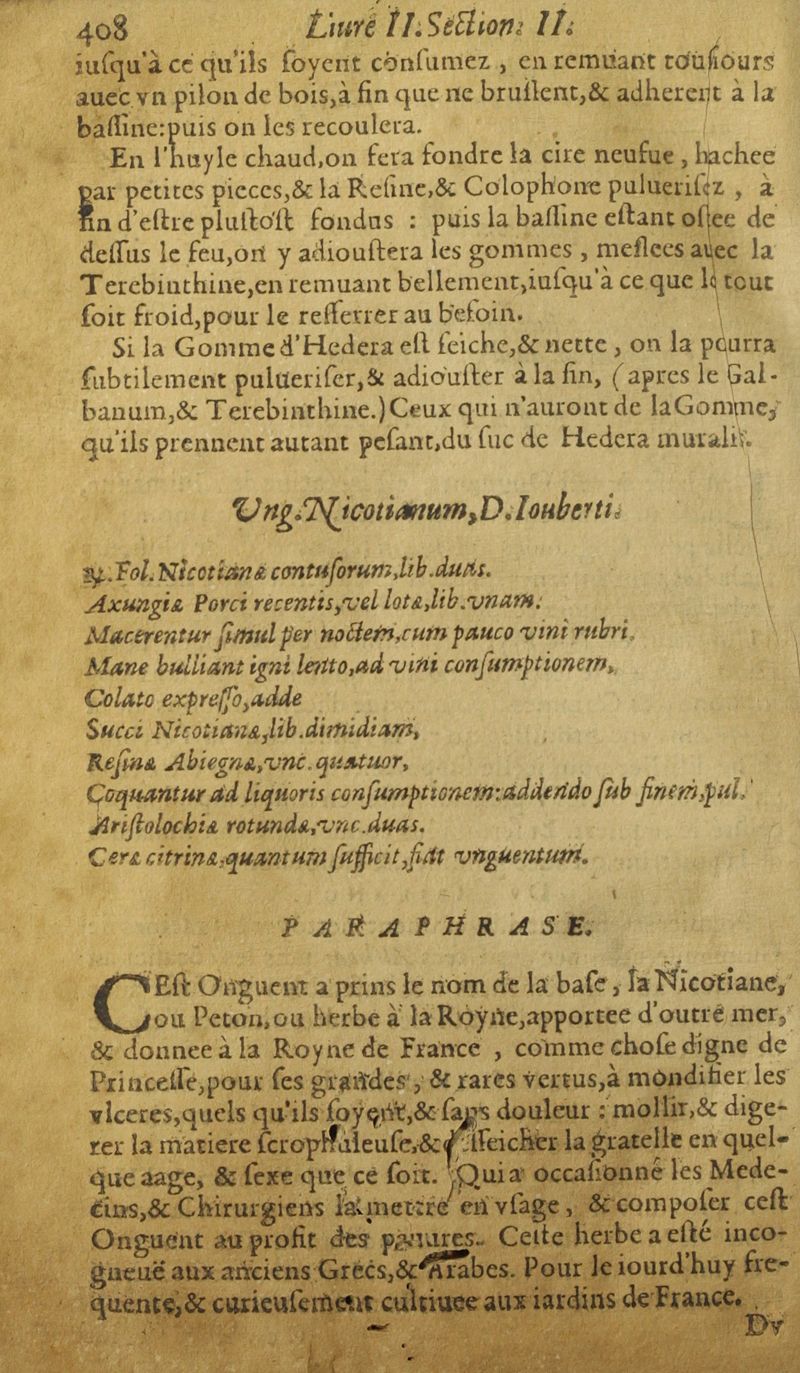 408 Liure II. Section II.
iusqu'à ce qu'ils soyent consumez, en remuant tousiours
auec vn pilon de bois,à fin que ne bruslent,& adherent à la
bassine:puis on les recoulera.
En l'huyle chaud,on fera fondre la cire neufue, hachee
par petites pieces,& la Resine,& Colophone puluerisez, à
fin d'estre plustost fondus : puis la bassine estant ostee de
dessus le feu,on y adioustera les gommes, meslees auec la
Terebinthine,en remuant bellement,iusqu'à ce que le tout
soit froid,pour le resserrer au besoin.
Si la Gomme d'Hedera est seiche,& nette, on la pourra
subtilement puluerifer,& adiouster à la fin, (apres le Gal-
banum,& Terebinthine.)Ceux qui n'auront de la Gomme,
qu'ils prennent autant pesant,du suc de Hedera muralis.
Vng. Nicotianum, D. Iouberti.
℞. Fol. Nicotianæ contusorum, lib. duas.
Axungiæ Porci recentis, vel lotæ, lib. vnam.
Macerentur simul per noctem, cum pauco vini rubri,
Mane bulliant igni lento, ad vini consumptionem,
Colato expresso, adde
Succi Nicotianæ, lib. dimidiam,
Resinæ Abiegnæ, vnc. quatuor,
Coquantur ad liquoris consumptionem: addendo sub finem, pul.
Aristolochiæ rotundæ, vnc. duas.
Ceræ citrinæ, quantum sufficit, fiat vnguentum.
PARAPHRASE.
CEst Onguent a prins le nom de la base, la Nicotiane,
ou Peton, ou herbe à la Royne,apportee d'outre mer,
& donnee à la Royne de France , comme chose digne de
Princesse,pour ses grandes, & rares vertus,à mondifier les
vlceres,quels qu'ils soyent,& sans douleur : mollir,& dige-
rer la matiere scrophuleuse,& desseicher la gratelle en quel-
que aage, & sexe que ce soit. Qui a occasionné les Mede-
cins,& Chirurgiens la mettre en vsage, & composer cest
Onguent au profit des pauures. Ceste herbe a esté inco-
gneuë aux anciens Grecs,& Arabes. Pour le iourd'huy fre-
quente,& curieusement cultiuee aux iardins de France.
Dv